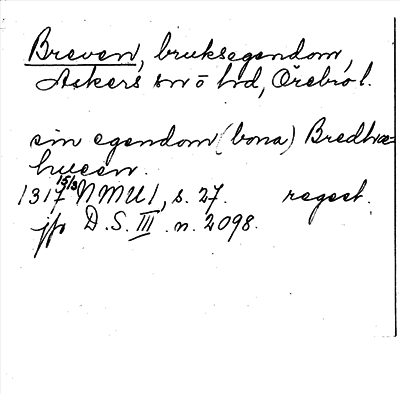 Breven, bruksegendom,
Askers sn o hd, Örebro l.
sin egendom (bona) Bredhwæ-
hween.
1317 15/3 NMU I, s. 27. regest.
jfr D.S. III. n. 2098.